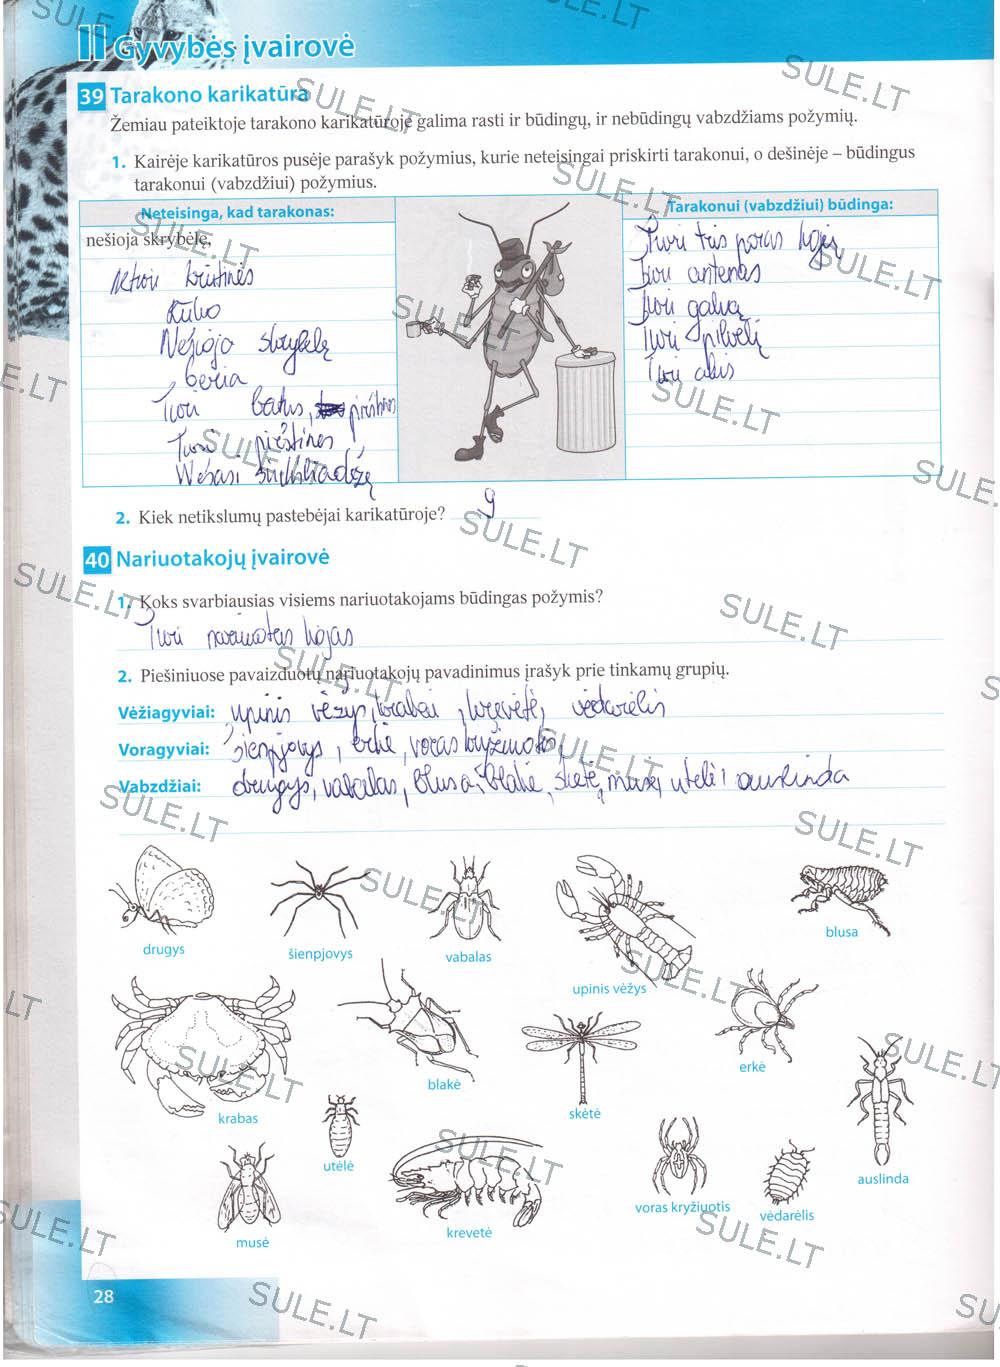 II Gyvybės įvairovė
39 Tarakono karikatūra
Žemiau pateiktoje tarakono karikatūroje galima rasti ir būdingų, ir nebūdingų vabzdžiams požymių.
1. Kairėje karikatūros pusėje parašyk požymius, kurie neteisingai priskirti tarakonui, o dešinėje – būdingus
tarakonui (vabzdžiui) požymius.
Neteisinga, kad tarakonas:
nešioja skrybėlę,
krūtinės
Kūno
Nešioja skrybelę
geria
Turi batus, pirštines
Turi pirštines
šiukšliadėžę
Tarakonui (vabzdžiui) būdinga:
Turi tris poras kojų
Turi antenas
Turi galvą
Turi pilvelį
Turi akis
2. Kiek netikslumų pastebėjai karikatūroje? 9
40 Nariuotakojų įvairovė
1. Koks svarbiausias visiems nariuotakojams būdingas požymis?
Turi nariuotas kojas
2. Piešiniuose pavaizduotų nariuotakojų pavadinimus įrašyk prie tinkamų grupių.
Vėžiagyviai: upinis vėžys, krabai, krevetė, vėdarėlis
Voragyviai: šienpjovys, erkė, voras kryžiuotis,
Vabzdžiai: drugys, vabalas, blusa, blakė, skėtė, musė, utėlė, auslinda
drugys
šienpjovys
vabalas
upinis vėžys
blusa
krabas
blakė
skėtė
erkė
auslinda
utėlė
musė
krevetė
voras kryžiuotis
vėdarėlis
28
SULE.LT